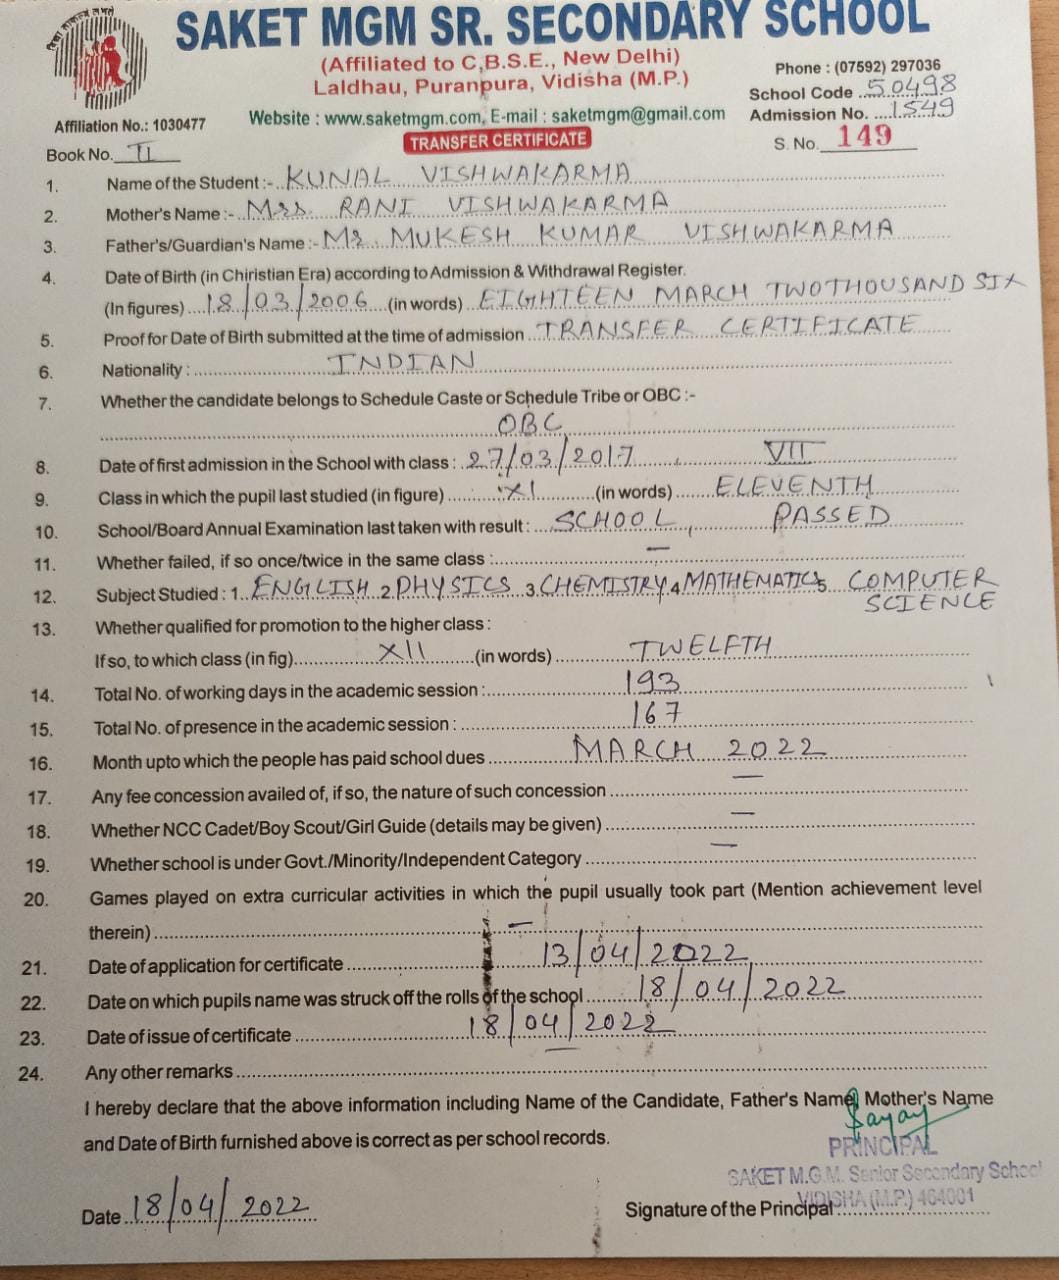 SAKET MGM SR. SECONDARY SCHOOL
(Affiliated to C,B.S.E., New Delhi)
Laldhau, Puranpura, Vidisha (M.P.)
Phone : (07592) 297036
School Code ..50498
Website : www.saketmgm.com, E-mail : saketmgm@gmail.com
Admission No. ....1549
Affiliation No.: 1030477
TRANSFER CERTIFICATE
S. No. 149
Book No. II
1. Name of the Student :- KUNAL VISHWAKARMA
2. Mother's Name :- Mrs. RANI VISHWAKARMA
3. Father's/Guardian's Name :- Mr. MUKESH KUMAR VISHWAKARMA
4. Date of Birth (in Chiristian Era) according to Admission & Withdrawal Register.
(In figures) 18/03/2006 (in words) EIGHTEEN MARCH TWOTHOUSAND SIX
5. Proof for Date of Birth submitted at the time of admission TRANSFER CERTIFICATE
6. Nationality : INDIAN
7. Whether the candidate belongs to Schedule Caste or Schedule Tribe or OBC :-
OBC
8. Date of first admission in the School with class : 27/03/2017, VII
9. Class in which the pupil last studied (in figure) XI (in words) ELEVENTH
10. School/Board Annual Examination last taken with result : SCHOOL, PASSED
11. Whether failed, if so once/twice in the same class : —
12. Subject Studied : 1. ENGLISH 2 PHYSICS 3 CHEMISTRY 4 MATHEMATICS 5 COMPUTER
SCIENCE
13. Whether qualified for promotion to the higher class :
If so, to which class (in fig) XII (in words) TWELFTH
14. Total No. of working days in the academic session : 193
15. Total No. of presence in the academic session : 167
16. Month upto which the people has paid school dues MARCH 2022
17. Any fee concession availed of, if so, the nature of such concession —
18. Whether NCC Cadet/Boy Scout/Girl Guide (details may be given) —
19. Whether school is under Govt./Minority/Independent Category —
20. Games played on extra curricular activities in which the pupil usually took part (Mention achievement level
therein) —
21. Date of application for certificate 13/04/2022
22. Date on which pupils name was struck off the rolls of the school 18/04/2022
23. Date of issue of certificate 18/04/2022
24. Any other remarks —
I hereby declare that the above information including Name of the Candidate, Father's Name, Mother's Name
and Date of Birth furnished above is correct as per school records.
PRINCIPAL
SAKET M.G.M. Senior Secondary School
VIDISHA (M.P.) 464001
Date 18/04/2022
Signature of the Principal